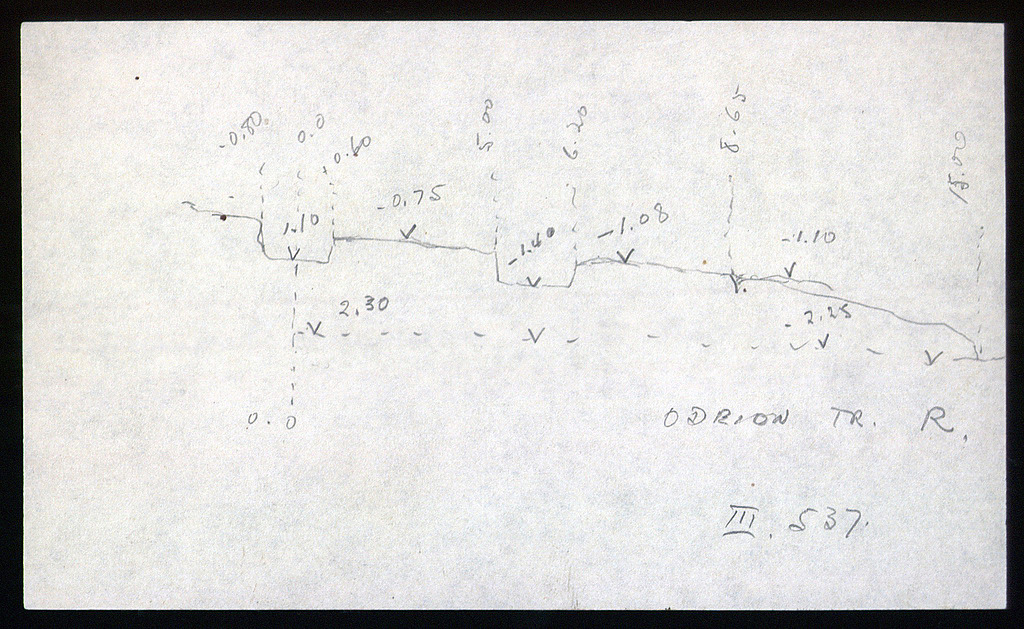 -0.80.
0.0
0.60
5.00
6.20
8.65
15.00
1.10
-0.75
-1.40
-1.08
-1.10
2.30
-2.25
0.0
ODRION TR. R.
III. 537.